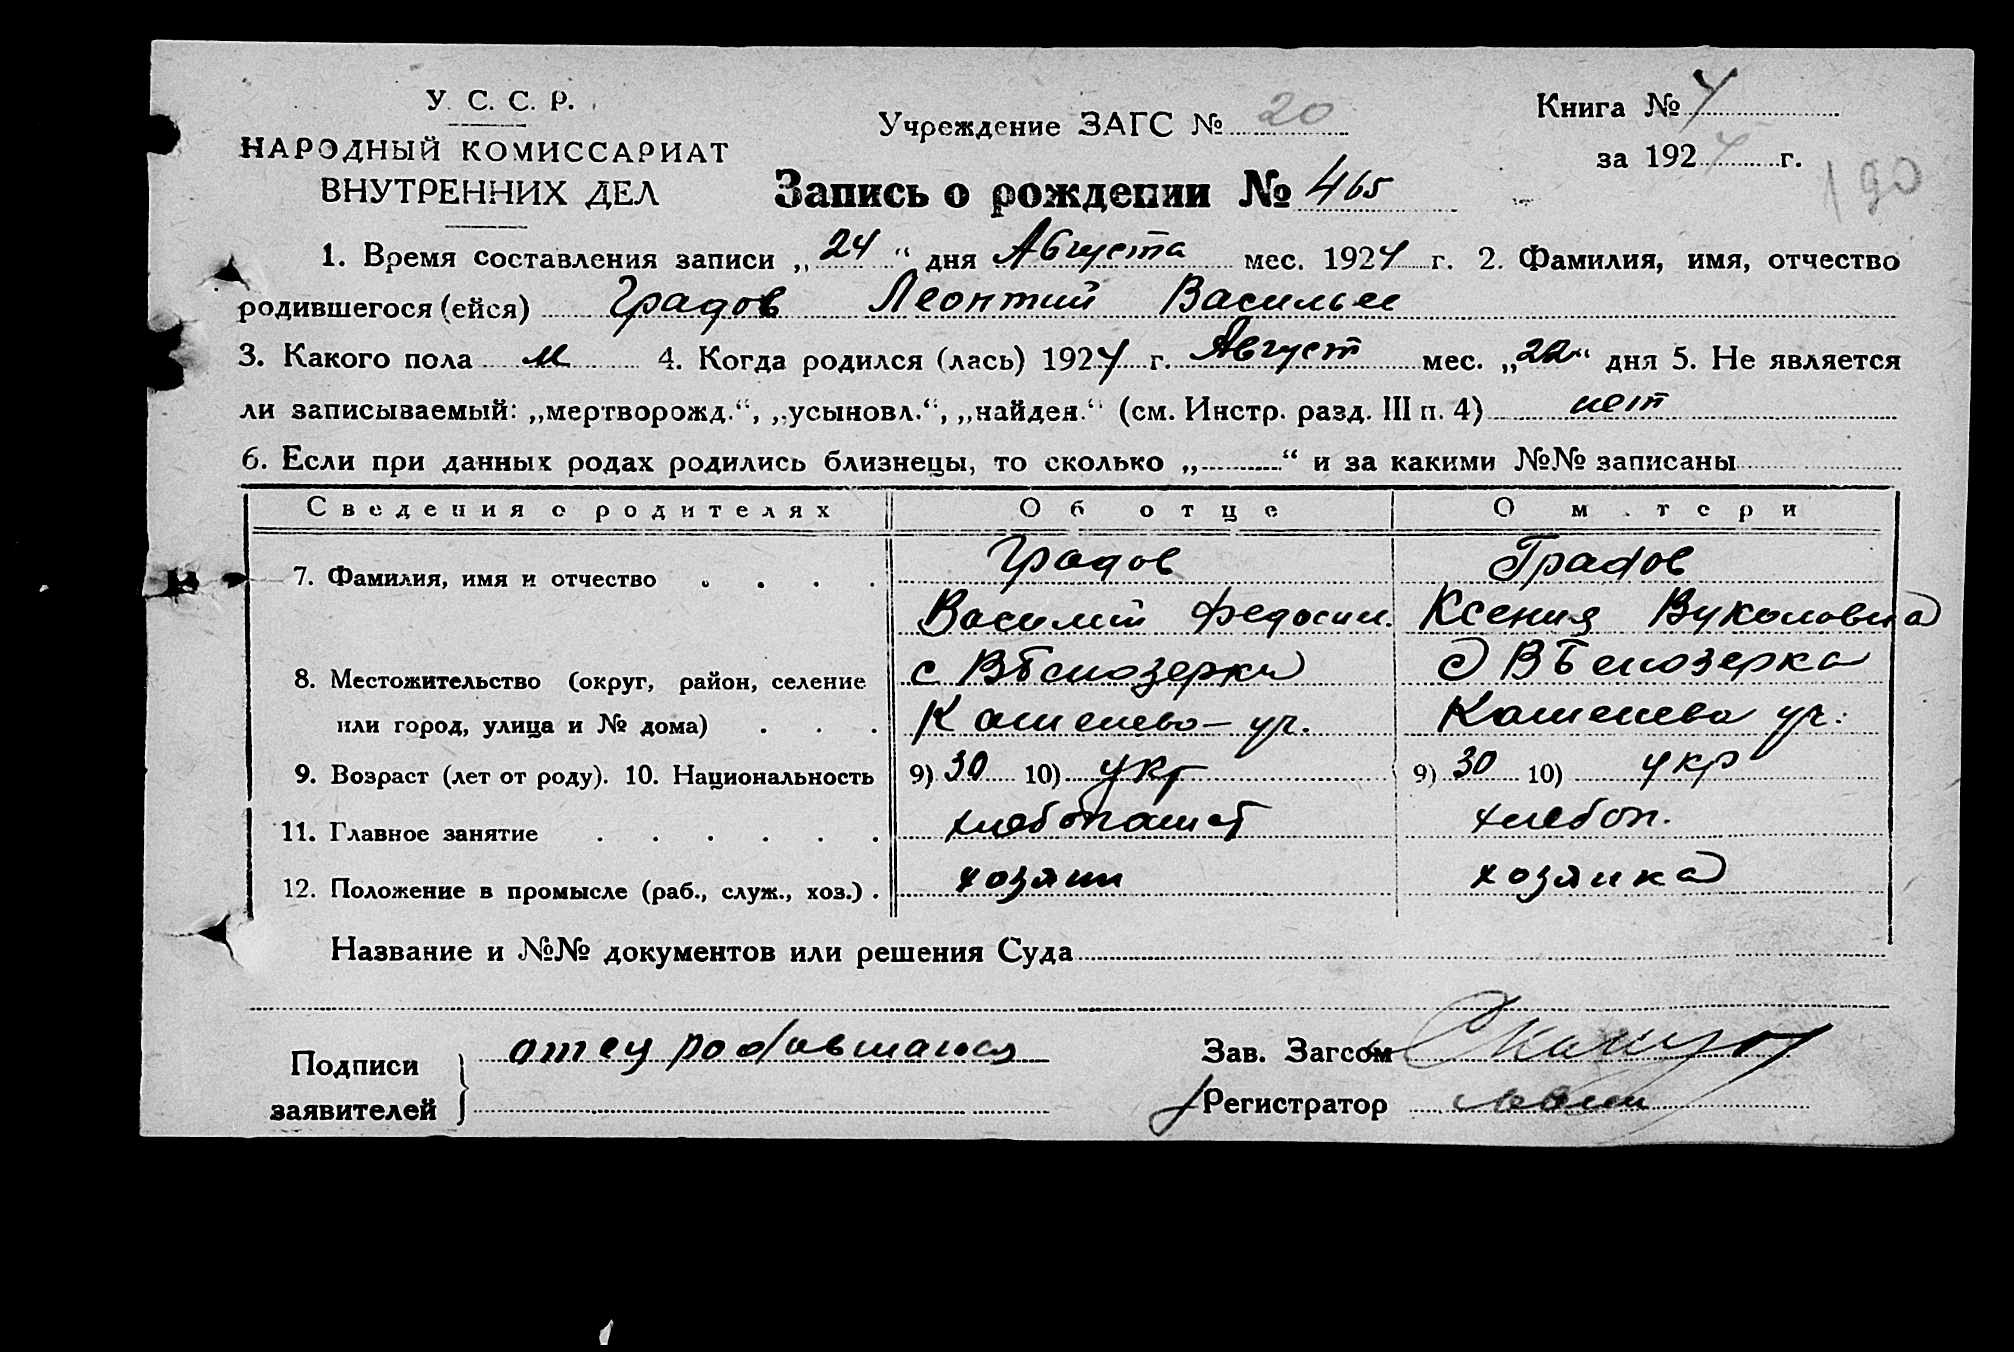 У. С. С. Р.
НАРОДНЫЙ КОМИССАРИАТ
ВНУТРЕННИХ ДЕЛ
Учреждение ЗАГС № 20
Книга № 4
за 1924 г.
190
Запись о рождении № 465
1. Время составления записи „24“ дня Августа мес. 1924 г. 2. Фамилия, имя, отчество
родившегося (ейся) Градов Леонтий Васильев
3. Какого пола м 4. Когда родился (лась) 1924 г. Август мес. „22“ дня 5. Не является
ли записываемый: „мертворожд.“, „усыновл.“, „найден.“ (см. Инстр. разд. III п. 4) нет
6. Если при данных родах родились близнецы, то сколько „ “ и за какими №№ записаны
Сведения о родителях Об отце О матери
7. Фамилия, имя и отчество Градов Градов
Василий Федосии. Ксения Вуколовна
8. Местожительство (округ, район, селение с В Белозерка с В Белозерка
или город, улица и № дома) ул. ул.
9. Возраст (лет от роду). 10. Национальность 9) 30 10) укр 9) 30 10) укр
11. Главное занятие хлебопашец хлебоп.
12. Положение в промысле (раб., служ., хоз.) хозяин хозяйка
Название и №№ документов или решения Суда
Подписи заявителей отец
Зав. Загсом
Регистратор